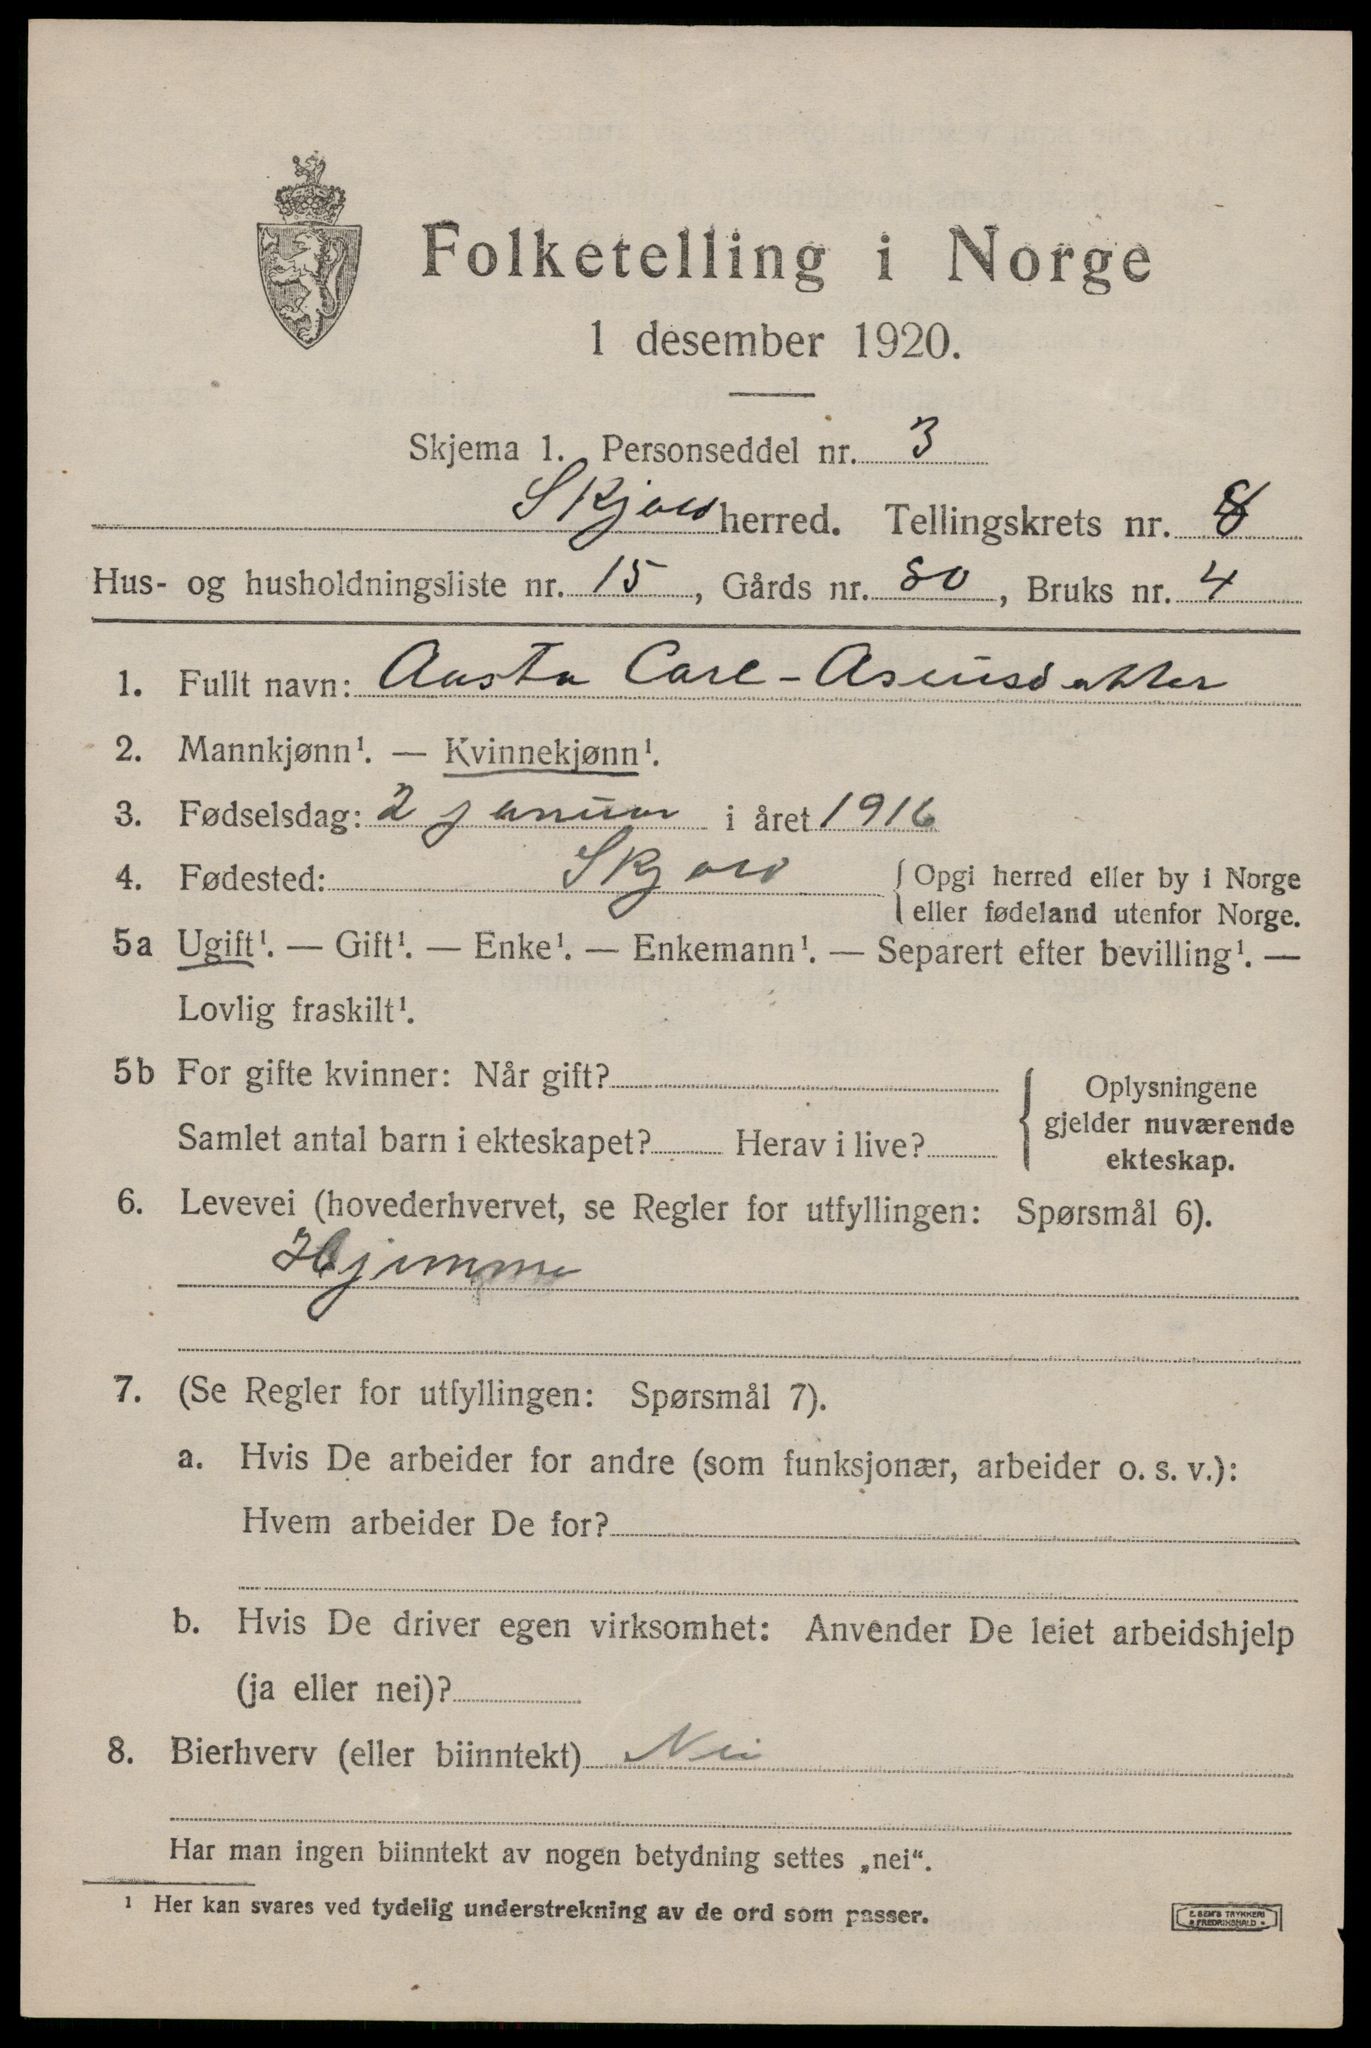 Folketelling i Norge
1 desember 1920.
Skjema 1. Personseddel nr. 3
Skjold herred. Tellingskrets nr. 8
Hus- og husholdningsliste nr. 15, Gårds nr. 80, Bruks nr. 4
1. Fullt navn: Aasta Carl-Aseusdatter
2. Mannkjønn¹. — Kvinnekjønn¹.
3. Fødselsdag: 2 januar i året 1916
4. Fødested: Skjold { Opgi herred eller by i Norge
eller fødeland utenfor Norge.
5a Ugift¹. — Gift¹. — Enke¹. — Enkemann¹. — Separert efter bevilling¹. —
Lovlig fraskilt¹.
5b For gifte kvinner: Når gift?
Samlet antal barn i ekteskapet? Herav i live?
{ Oplysningene
gjelder nuværende
ekteskap.
6. Levevei (hovederhvervet, se Regler for utfyllingen: Spørsmål 6).
Hjemme
7. (Se Regler for utfyllingen: Spørsmål 7).
a. Hvis De arbeider for andre (som funksjonær, arbeider o. s. v.):
Hvem arbeider De for?
b. Hvis De driver egen virksomhet: Anvender De leiet arbeidshjelp
(ja eller nei)?
8. Bierhverv (eller biinntekt) Nei
Har man ingen biinntekt av nogen betydning settes „nei“.
¹ Her kan svares ved tydelig understrekning av de ord som passer.
E. SEM'S TRYKKERI
FREDRIKSHALD